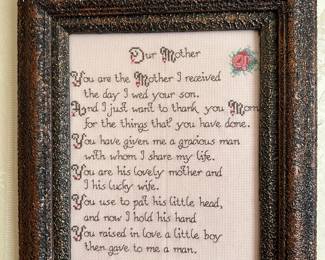 Our Mother
You are the Mother I received
the day I wed your son.
And I just want to thank you Mom
for the things that you have done.
You have given me a gracious man
with whom I share my life.
You are his lovely mother and
I his lucky wife.
You use to pat his little head,
and now I hold his hand
You raised in love a little boy
then gave to me a man.